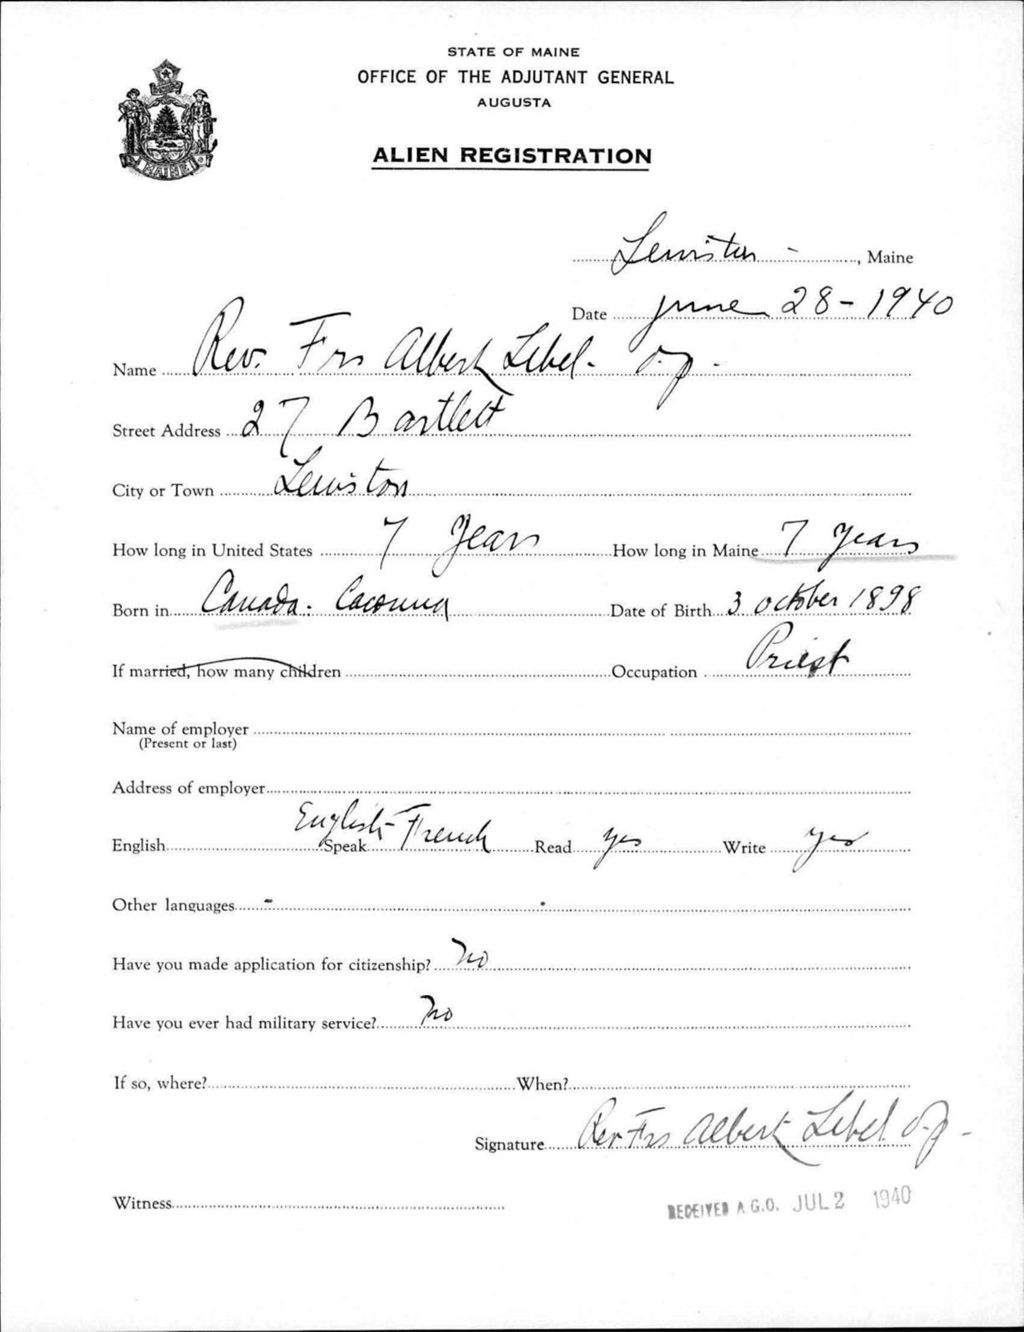 STATE OF MAINE
OFFICE OF THE ADJUTANT GENERAL
AUGUSTA
ALIEN REGISTRATION
MAINE
Lewiston - , Maine
Date June 28-1940
Name Rev. Frs Albert Lebel. o.p.
Street Address 27 Bartlett
City or Town Lewiston
How long in United States 7 Years How long in Maine 7 years
Born in Canada. Cacouna Date of Birth 3 october 1898
If married, how many children Occupation Priest
Name of employer
(Present or last)
Address of employer
English Speak English-French Read yes Write yes
Other languages -
Have you made application for citizenship? No
Have you ever had military service? No
If so, where? When?
Signature Rev Frs Albert Lebel o.p.
Witness
RECEIVED A.G.O. JUL 2 1940